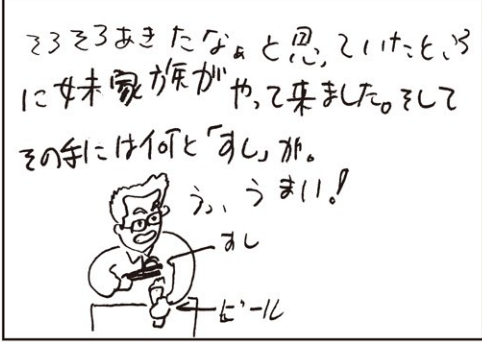 そろそろあきたなぁと思っていたところ
に妹家族がやって来ました。そして
その手には何と「すし」が。
うっ、うまい!
すし
ビール